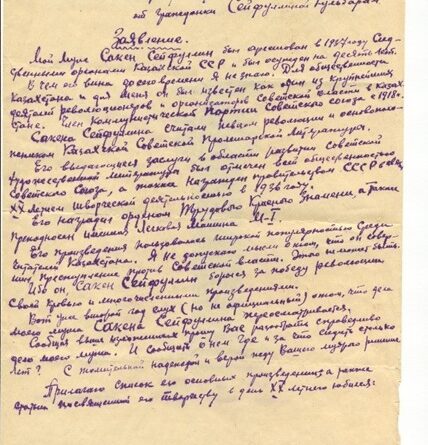 от гражданки Сейфуллиной Гульбарам
Заявление.
Мой муж Сакен Сейфуллин был арестован в 1937 году След-
ственными органами Казахской ССР и был осужден на десять лет.
В чем его вина до сего времени Я не знаю. Для общественности
Казахстана и для меня он был известен как один из крупнейших
деятелей революционеров и организаторов Советской власти в Казах-
стане. Член Коммунистической Партии Советского Союза с 1918г.
Сакена Сейфуллина считали певцом революции и основопо-
ложником Казахской Советской Пролетарской Литературы.
Его выдающиеся заслуги в области развития Советской
художественной литературы был отмечен всей общественностью
Советского Союза, а также Награжден правительством СССР в связи
XX летием творческой деятельностью в 1936 году.
Его наградил орденом Трудового Красного Знамени, а также
преподнесен именная Легковая Машина М-1.
Его произведения пользовалось широкой популярностью Среди
Читателей Казахстана. Я не допускаю мысли о том, что он совер-
шил преступление против Советской власти. Этого не может быть.
Ибо он, Сакен Сейфуллин боролся за победу революции
Своей Кровью и многочисленными произведениями.
Вот уже второй год слух (но не официальный) о том, что дело
моего мужа Сакена Сейфуллина пересматривается.
Сообщая выше изложенных прошу Вас разобрать справедливо
дело моего мужа. И сообщить о нем где и за что сидит столько
лет? С надеждой и верой жду Вашего мудрого решения
Прилагаю список его основных произведений а также
статьи посвященной его творчеству в день XX летнего юбилея: